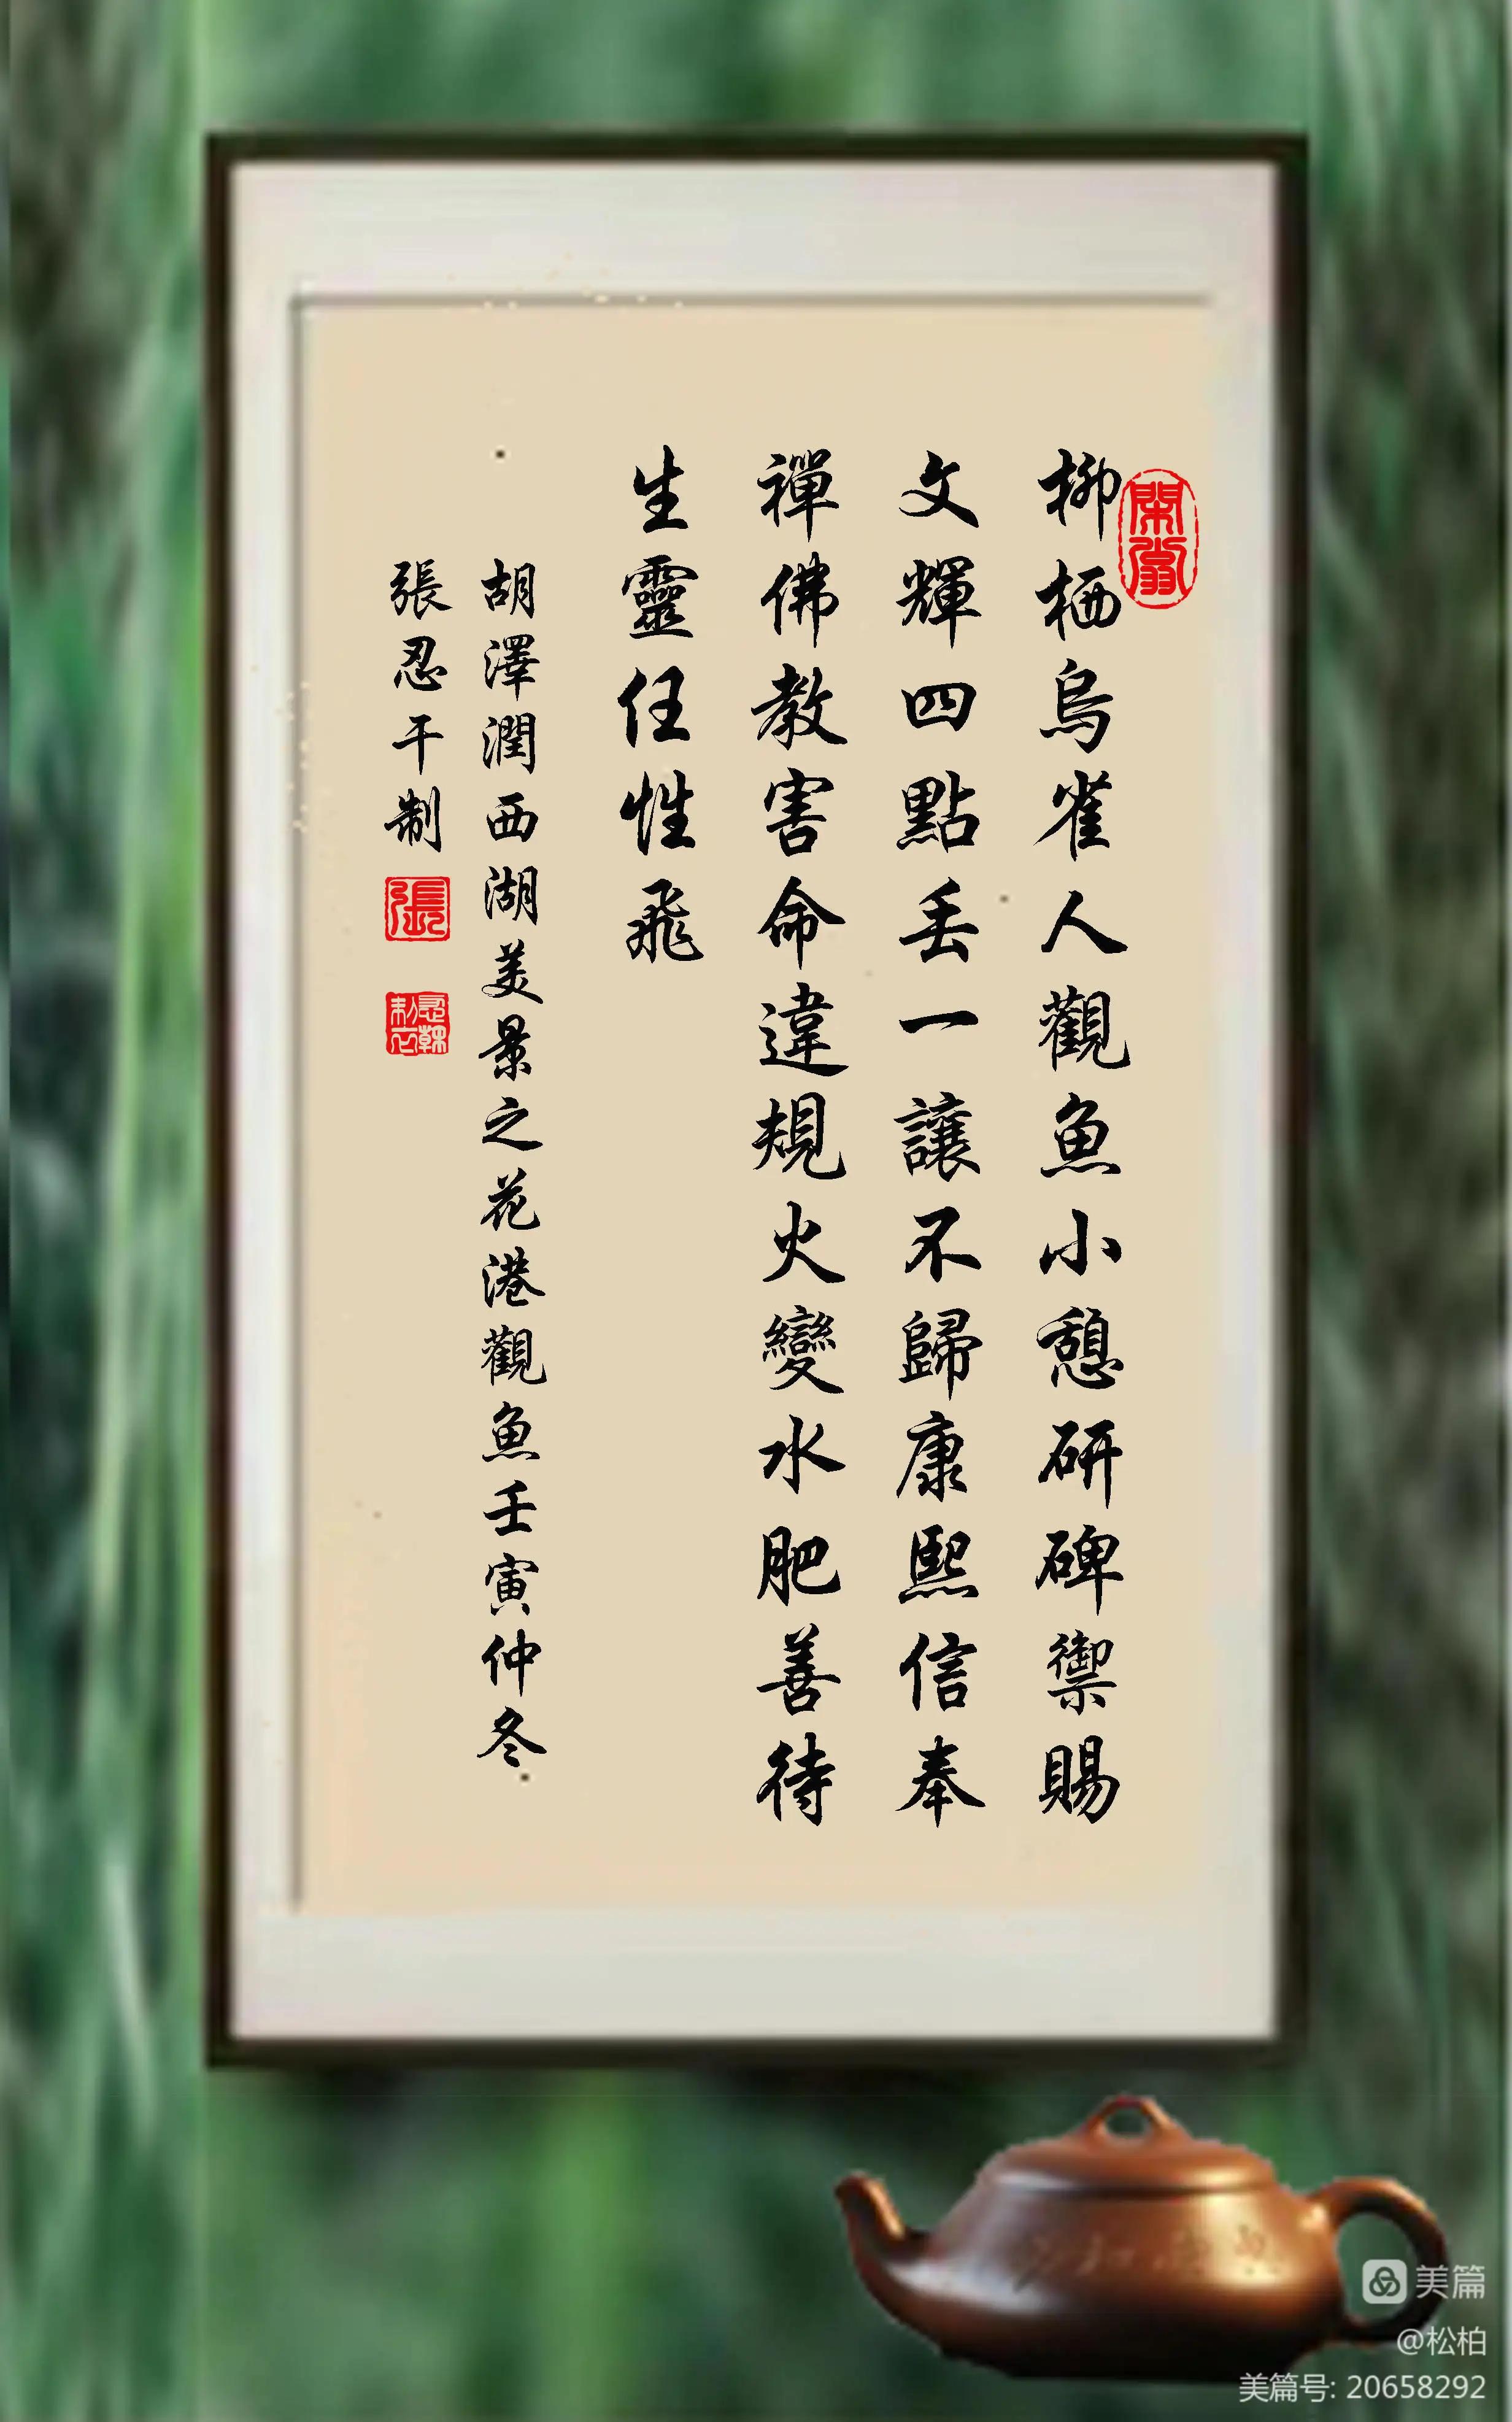 柳栖烏雀人觀魚小憩研碑禦賜
文輝四點丢一讓不歸康熙信奉
禪佛教害命違規火變水肥善待
生靈任性飛
胡澤潤西湖美景之花港觀魚壬寅仲冬
張忍干制
張
美篇
@松柏
美篇号: 20658292